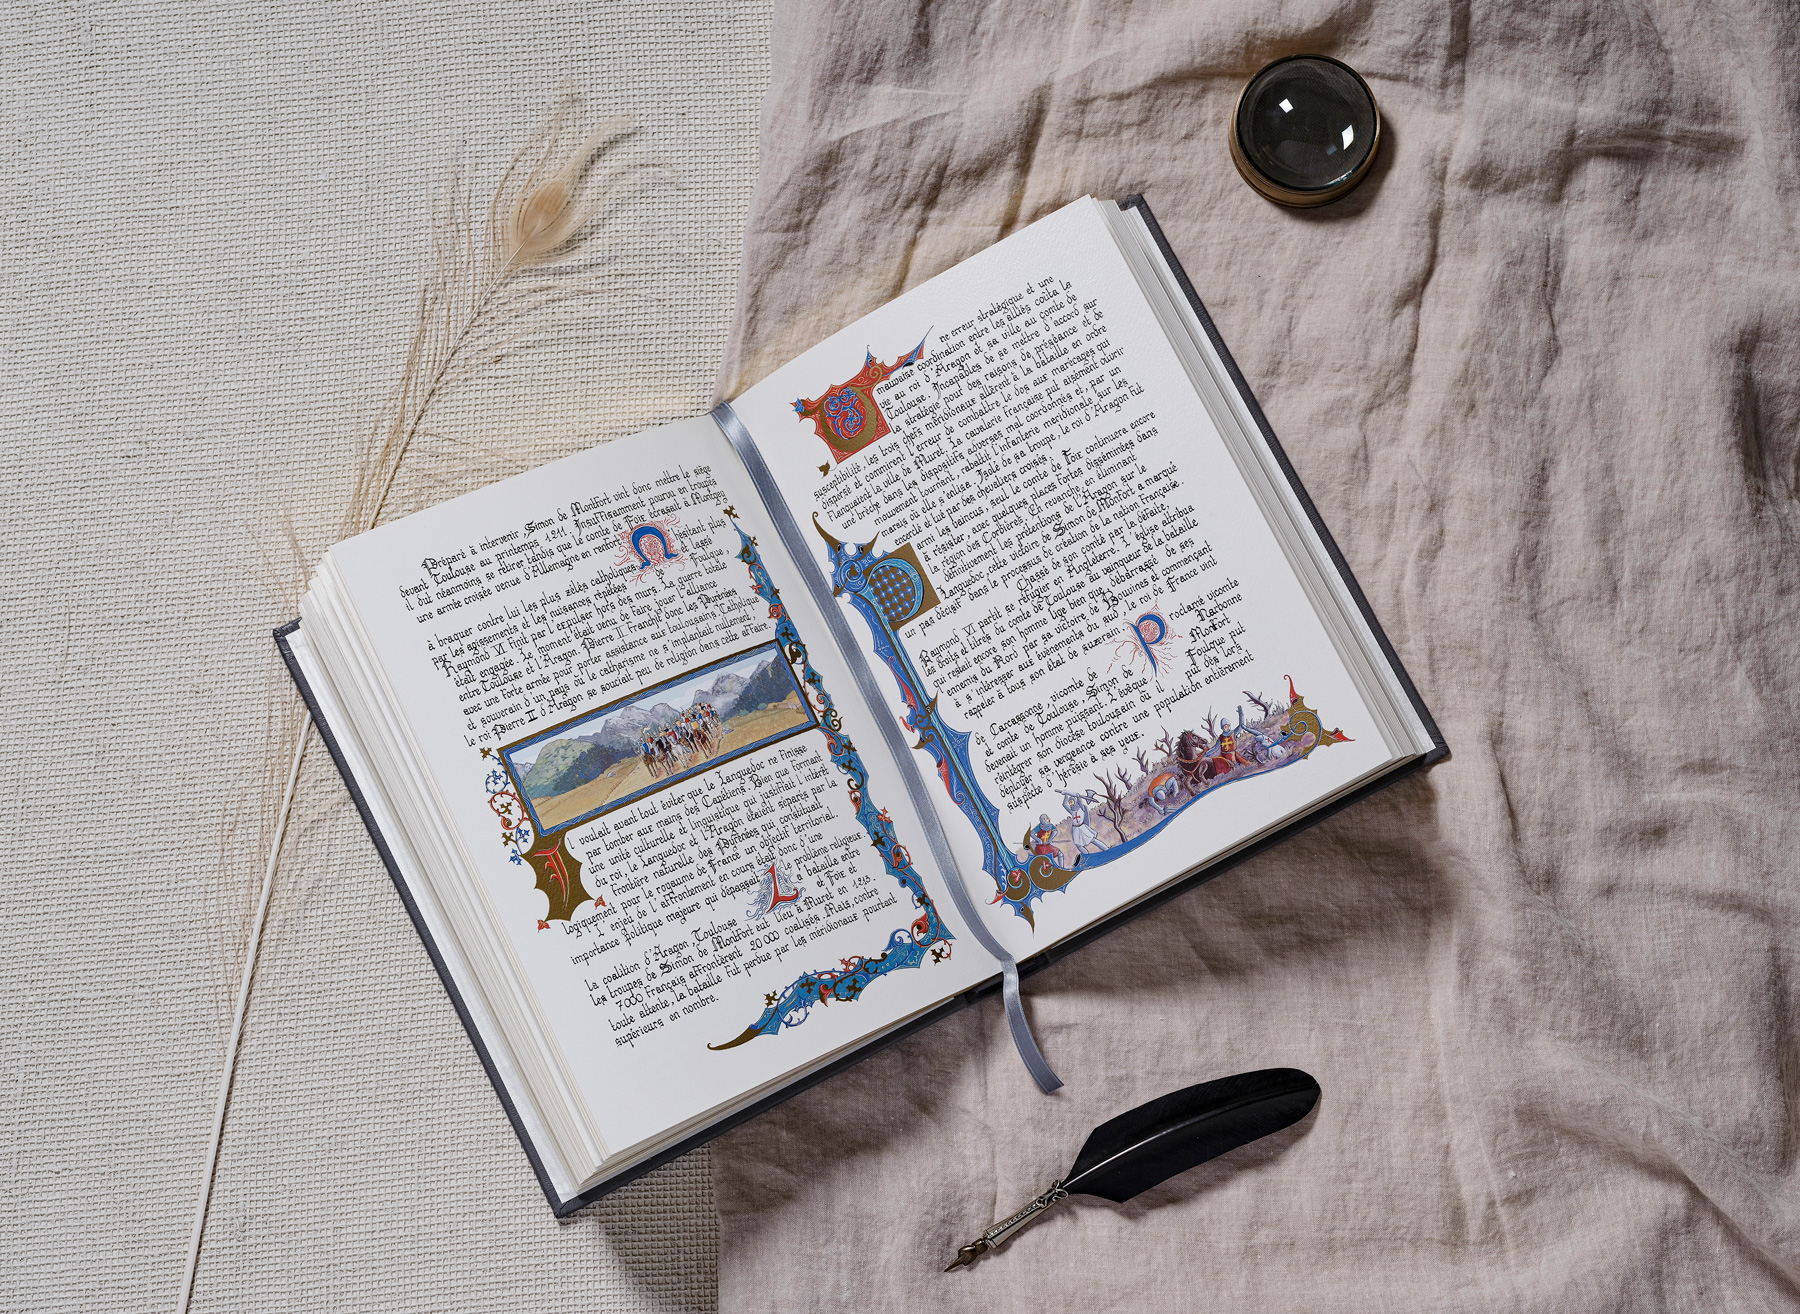 Préparé à intervenir, Simon de Montfort vint donc mettre le siège
devant Toulouse au printemps 1211. Insuffisamment pourvu en troupes
il dut néanmoins se retirer tandis que le comte de Foix écrasait à Montgey
une armée croisée venue d'Allemagne en renfort. N
ésitant plus
à braquer contre lui les plus zélés catholiques
et lassé
par les agissements et les nuisances répétées
de Foulque,
Raymond VI finit par l'expulser hors des murs. La guerre totale
était engagée. Le moment était venu de faire jouer l'alliance
entre Toulouse et l'Aragon. Pierre II franchit donc les Pyrénées
avec une forte armée pour porter assistance aux toulousains. Catholique
et souverain d'un pays où le catharisme ne s'implantait nullement,
le roi Pierre II d'Aragon se souciait peu de religion dans cette affaire.
Il voulait avant tout éviter que le Languedoc ne finisse
par tomber aux mains des Capétiens. Bien que formant
une unité culturelle et linguistique qui justifiait l'intérêt
du roi, le Languedoc et l'Aragon étaient séparés par la
frontière naturelle des Pyrénées qui constituait
logiquement pour le royaume de France un objectif territorial.
L'enjeu de l'affrontement en cours était donc d'une
importance politique majeure qui dépassait le problème religieux.
La bataille entre
la coalition d'Aragon, Toulouse et Foix et
les troupes de Simon de Montfort eut lieu à Muret en 1213.
7000 Français affrontèrent 20 000 coalisés. Mais, contre
toute attente, la bataille fut perdue par les méridionaux pourtant
supérieurs en nombre.
Une erreur stratégique et une
mauvaise coordination entre les alliés coûta la
vie au roi d'Aragon et sa ville au comte de
Toulouse. Incapables de se mettre d'accord sur
la stratégie pour des raisons de préséance et de
susceptibilité, les trois chefs méridionaux allèrent à la bataille en ordre
dispersé et commirent l'erreur de combattre le dos aux marécages qui
flanquaient la ville de Muret. La cavalerie française put aisément ouvrir
une brèche dans les dispositifs adverses mal coordonnés et, par un
mouvement tournant, rabattit l'infanterie méridionale sur les
marais où elle s'enlisa. Isolé de sa troupe, le roi d'Aragon fut
encerclé et tué par des chevaliers croisés.
Parmi les vaincus, seul le comte de Foix continuera encore
à résister, avec quelques places fortes disséminées dans
la région des Corbières. En revanche, en éliminant
définitivement les prétentions de l'Aragon sur le
Languedoc, cette victoire de Simon de Montfort a marqué
un pas décisif dans le processus de création de la nation française.
Chassé de son comté par la défaite,
Raymond VI partit se réfugier en Angleterre. L'église attribua
les droits et titres du comte de Toulouse au vainqueur de la bataille
qui restait encore son homme lige bien que débarrassé de ses
ennemis du Nord par sa victoire de Bouvines et commençant
à s'intéresser aux évènements du sud, le roi de France vint
rappeler à tous son état de suzerain. Proclamé vicomte
de Carcassonne, vicomte de Narbonne
et comte de Toulouse, Simon de Montfort
devenait un homme puissant. L'évêque Foulque put
réintégrer son diocèse toulousain où il put dès lors
déployer sa vengeance contre une population entièrement
suspecte d'hérésie à ses yeux.